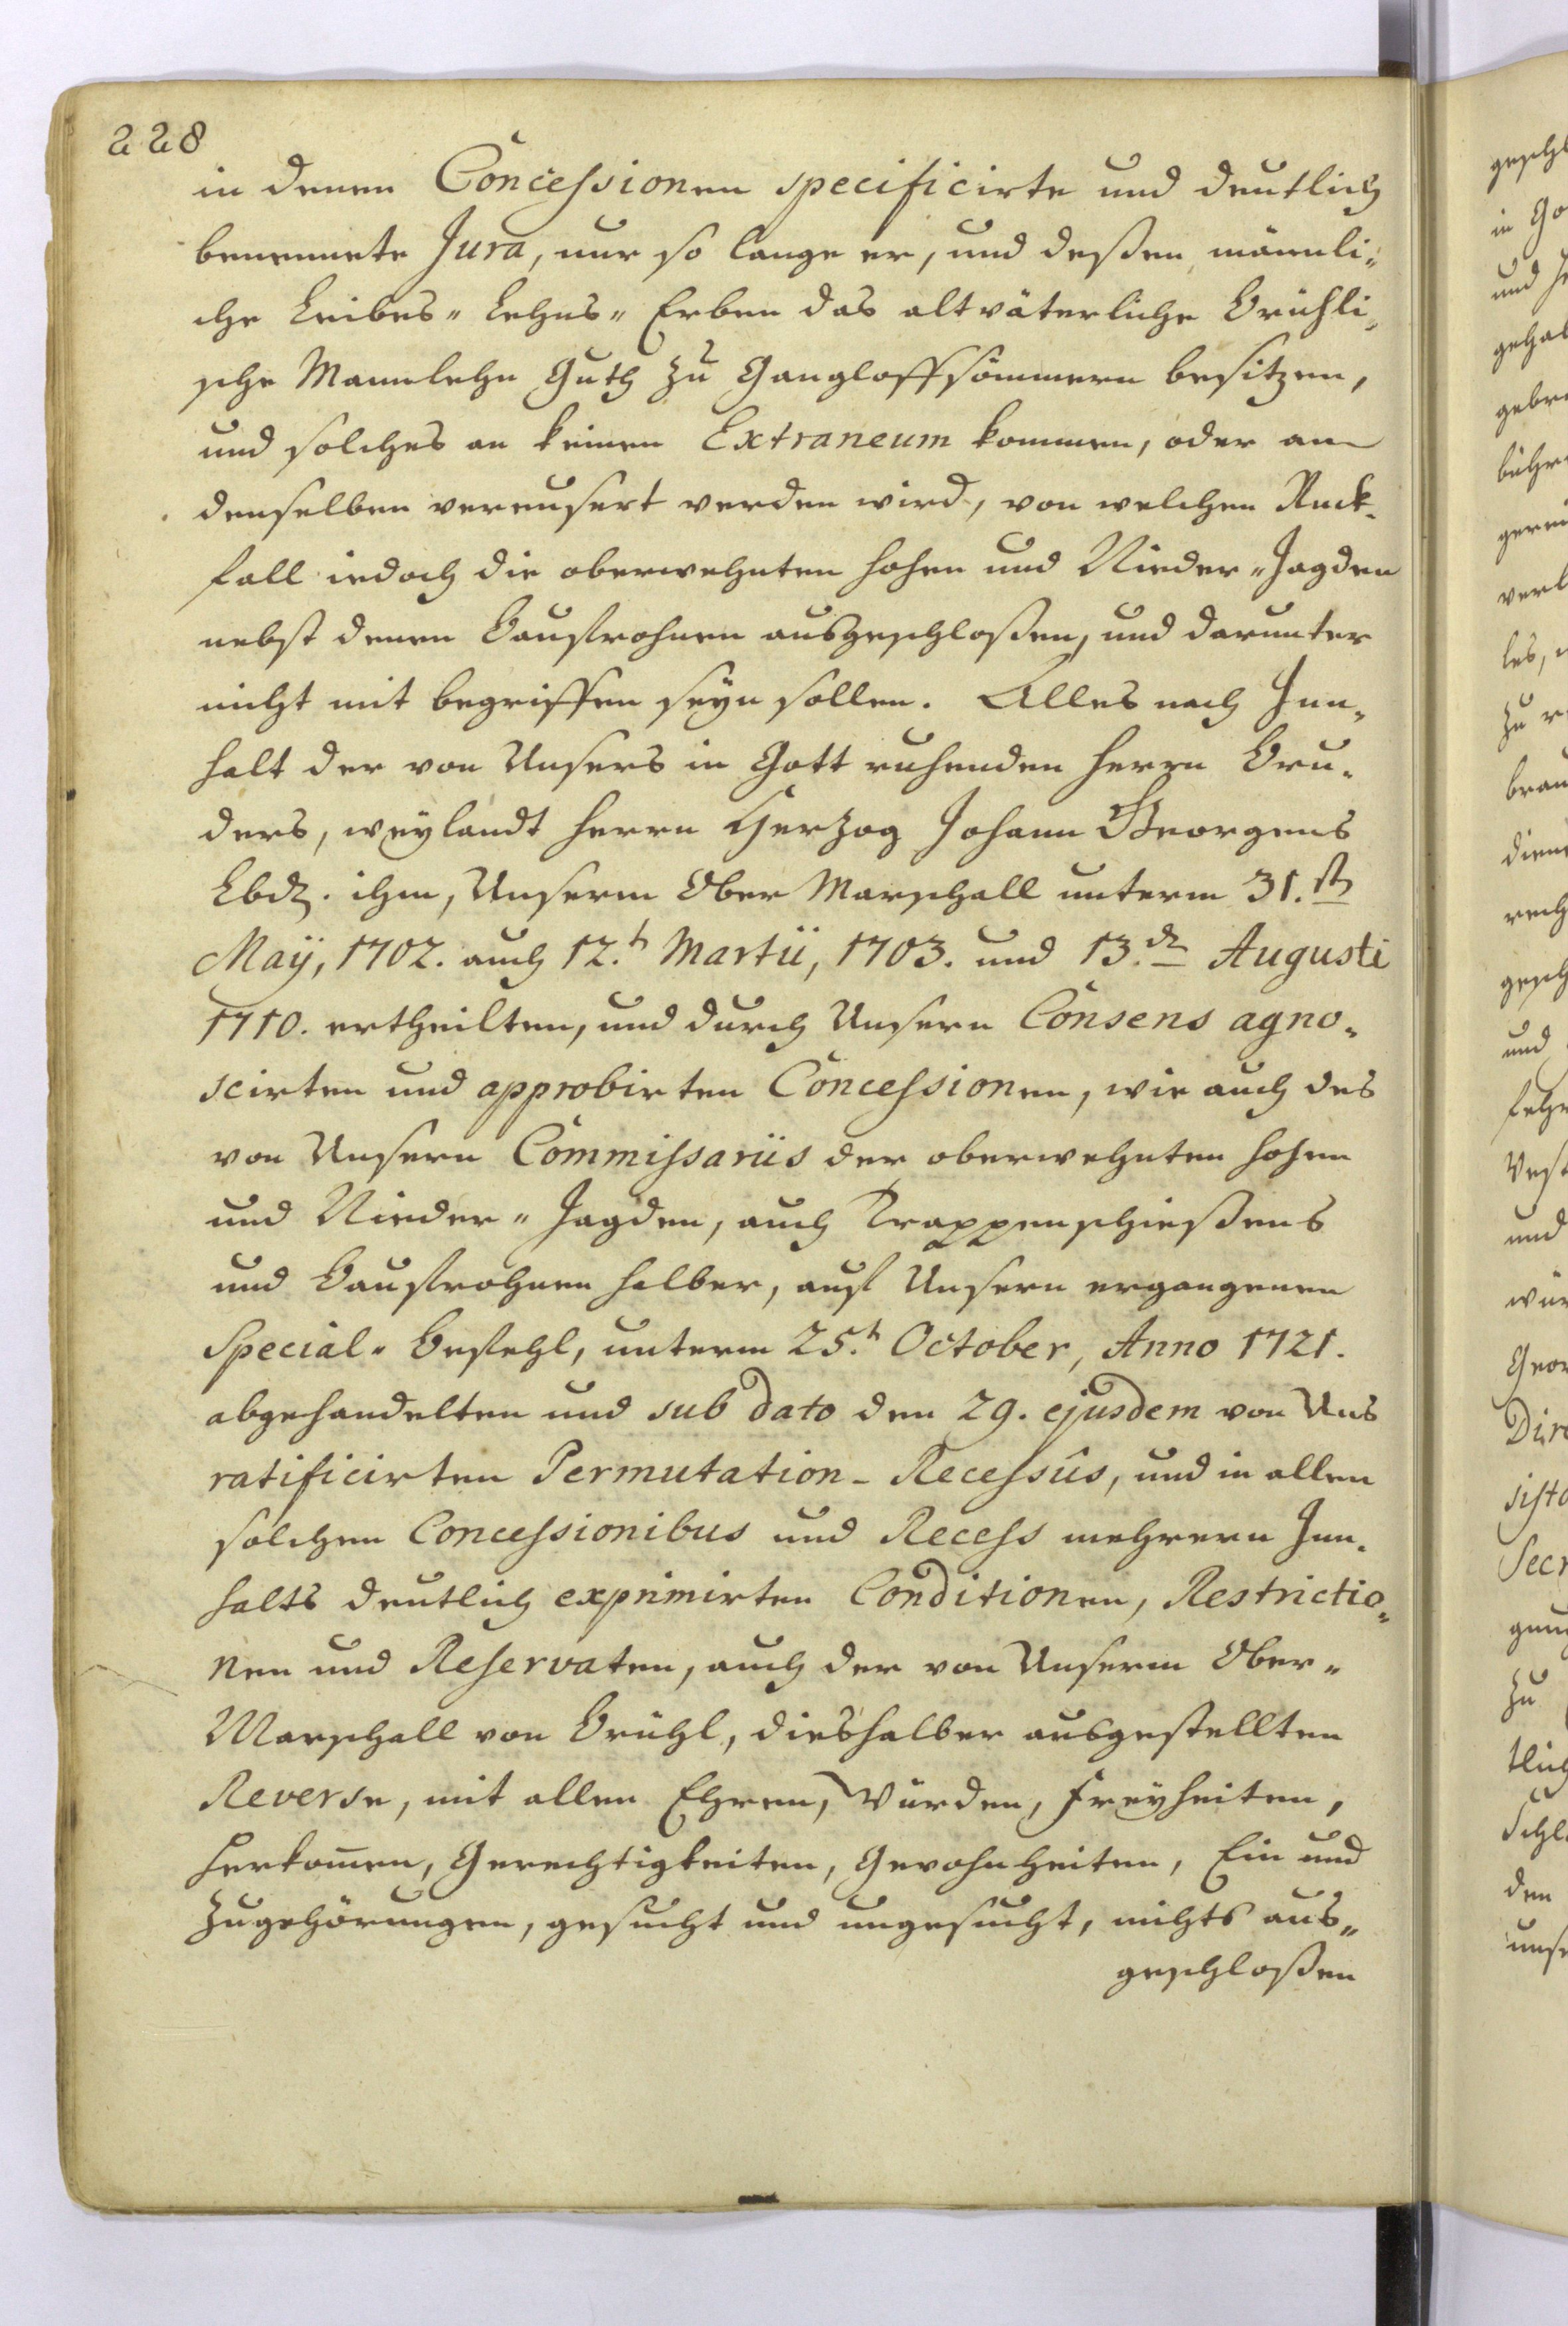 228
in denen Concessionen specificirte und deutlich
benennete Jura, nur so lange er, und deßen männli-
che Leibes- Lehns- Erben das altväterliche Brühli-
sche Mannlehn Guth zu Gangloffsömmern besitzen,
und solches an keinen Extraneum kommen, oder an
denselben vereusert werden wird, von welchen Ruck-
fall iedoch die oberwehnten hohen und Nieder-Jagden
nebst denen Baufrohnen ausgeschloßen, und darunter
nicht mit begriffen seyn sollen. Alles nach Inn-
halt der von Unsers in Gott ruhenden Herrn Bru-
ders, weylandt Herrn Herzog Johann Georgens
Lbd. ihm, Unserm Ober Marschall unterm 31.st
Maÿ, 1702. auch 12.t Martii, 1703. und 13.den Augusti
1710. ertheilten, und durch Unsern Consens agno-
scirten und approbirten Concessionen, wie auch des
von Unsern Commissariis der oberwehnten hohen
und Nieder- Jagden, auch Trappenschießens
und Baufrohnen halber, auf Unsern ergangenen
Special- Befehl, unterm 25.t October, Anno 1721.
abgehandelten und sub dato den 29. ejusdem von Uns
ratificirten Permutation- Recessus, und in allen
solchen Concessionibus und Recess mehrern Inn-
halts deutlich exprimirten Conditionen, Restrictio-
nen und Reservaten, auch der von Unserm Ober-
Marschall von Brühl, dieshalber ausgestellten
Reverse, mit allen Ehren, Würden, Freyheiten,
Herkom̅en, Gerechtigkeiten, Gewohnheiten, Ein und
Zugehörungen, gesucht und ungesucht, nichts aus-
geschloßen